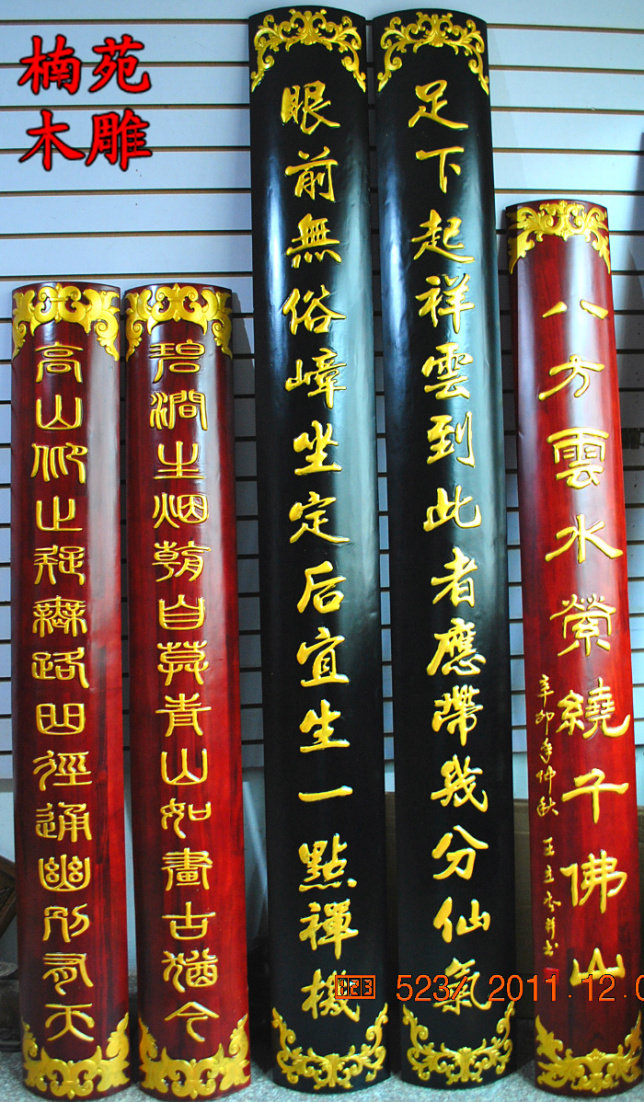 楠苑
木雕
八方雲水縈繞千佛山
辛卯年仲秋
足下起祥雲到此者應帶幾分仙氣
眼前無俗嶂坐定后宜生一點禪機
碧澗生烟朝自莫青山如畫古猶今
高山仰止疑無路曲徑通幽別有天
523/ 2011.12.0